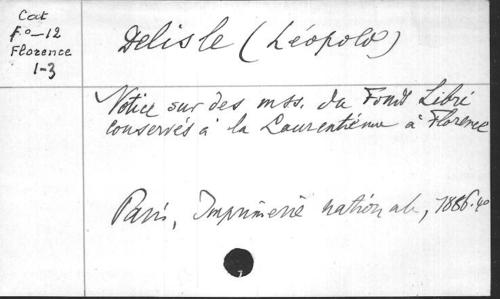 Cat
F.o-12
Florence
1-3
Delisle (Léopold)
Notice sur des mss. du Fonds Libri
conservés à la Laurentienne à Florence
Paris, Imprimerie nationale, 1886. 4o